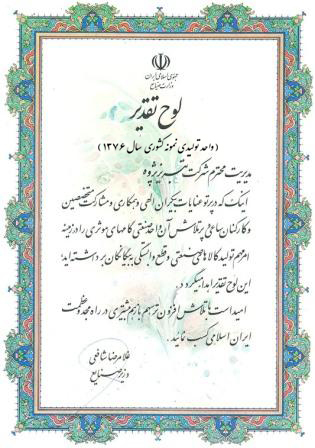 جمهوری اسلامی ایران
وزارت صنایع
لوح تقدیر
(واحد تولیدی نمونه کشوری سال ۱۳۷۶)
مدیریت محترم شرکت تبریز پژوه
اینک که در پرتو عنایات بیکران الهی و همکاری و مشارکت متخصصین
و کارکنان ساعی و پرتلاش آن واحد صنعتی گامهای موثری را در زمینه
امر مهم تولید کالاهای صنعتی و قطع وابستگی بیگانگان برداشته اید؛
این لوح تقدیر اهدا میگردد.
امید است با تلاش افزون تر سهم بازهم بیشتری در راه مجد و عظمت
ایران اسلامی کسب نمائید.
غلامرضا شافعی
وزیر صنایع